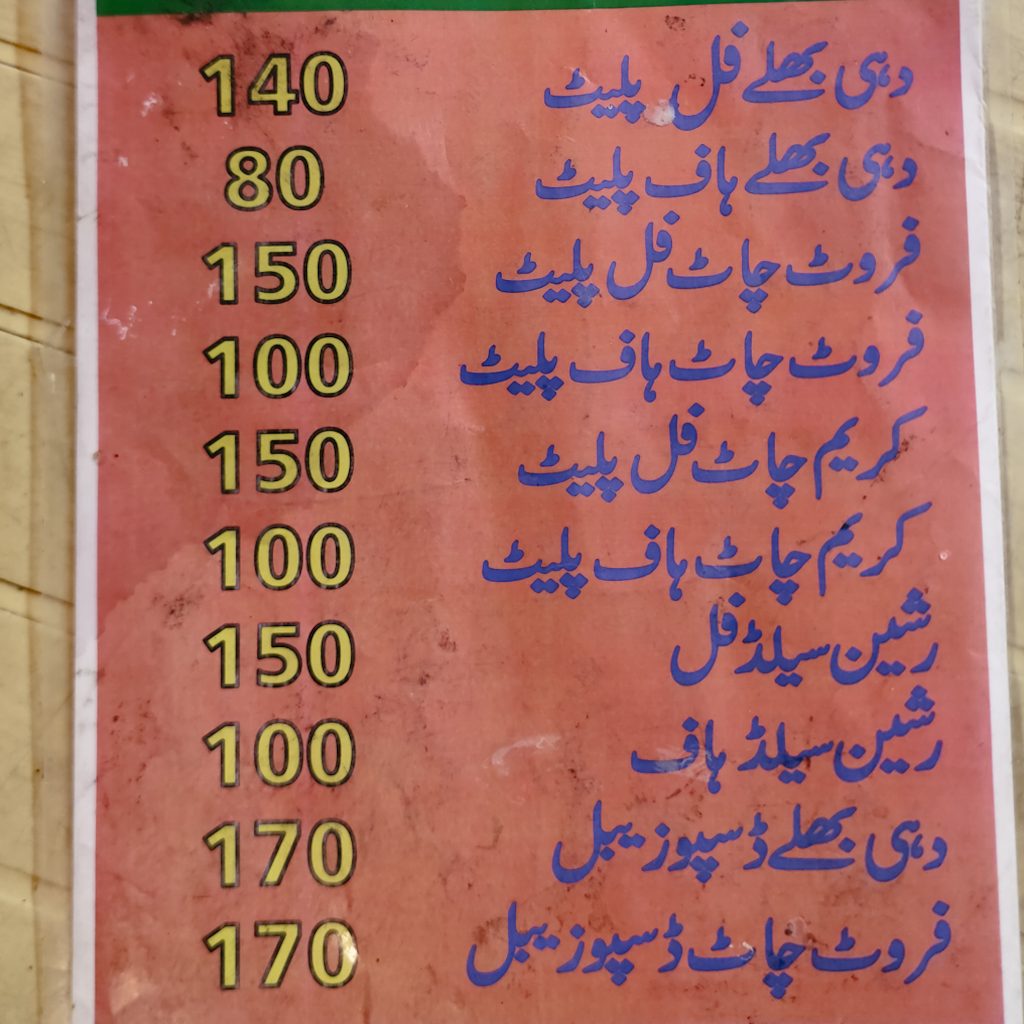 دہی بھلے فل پلیٹ 140
دہی بھلے ہاف پلیٹ 80
فروٹ چاٹ فل پلیٹ 150
فروٹ چاٹ ہاف پلیٹ 100
کریم چاٹ فل پلیٹ 150
کریم چاٹ ہاف پلیٹ 100
رشین سیلڈ فل 150
رشین سیلڈ ہاف 100
دہی بھلے ڈسپوزیبل 170
فروٹ چاٹ ڈسپوزیبل 170